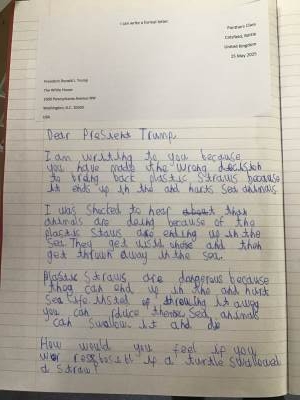 I can write a formal letter.
Panthers Class
United Kingdom
15 May 2025
President Donald J. Trump
The White House
1600 Pennsylvania Avenue NW
Washington, D.C. 20500
USA
Dear President Trump
I am writing to you because
you have made the wrong decision
to bring back plastic straws because
it ends up in the and harts sea animals.
I was shocked to hear that
animals are dying because of the
plastic straws are ending up in the
sea. They get used and then
get thrown away in the sea.
Plastic straws are dangerous because
they can end up in the and hurt
sea life. insted of throwing it away
you can animals
can swallow it and die
How would you feel if you
wer if a turtle swallowed
a straw?